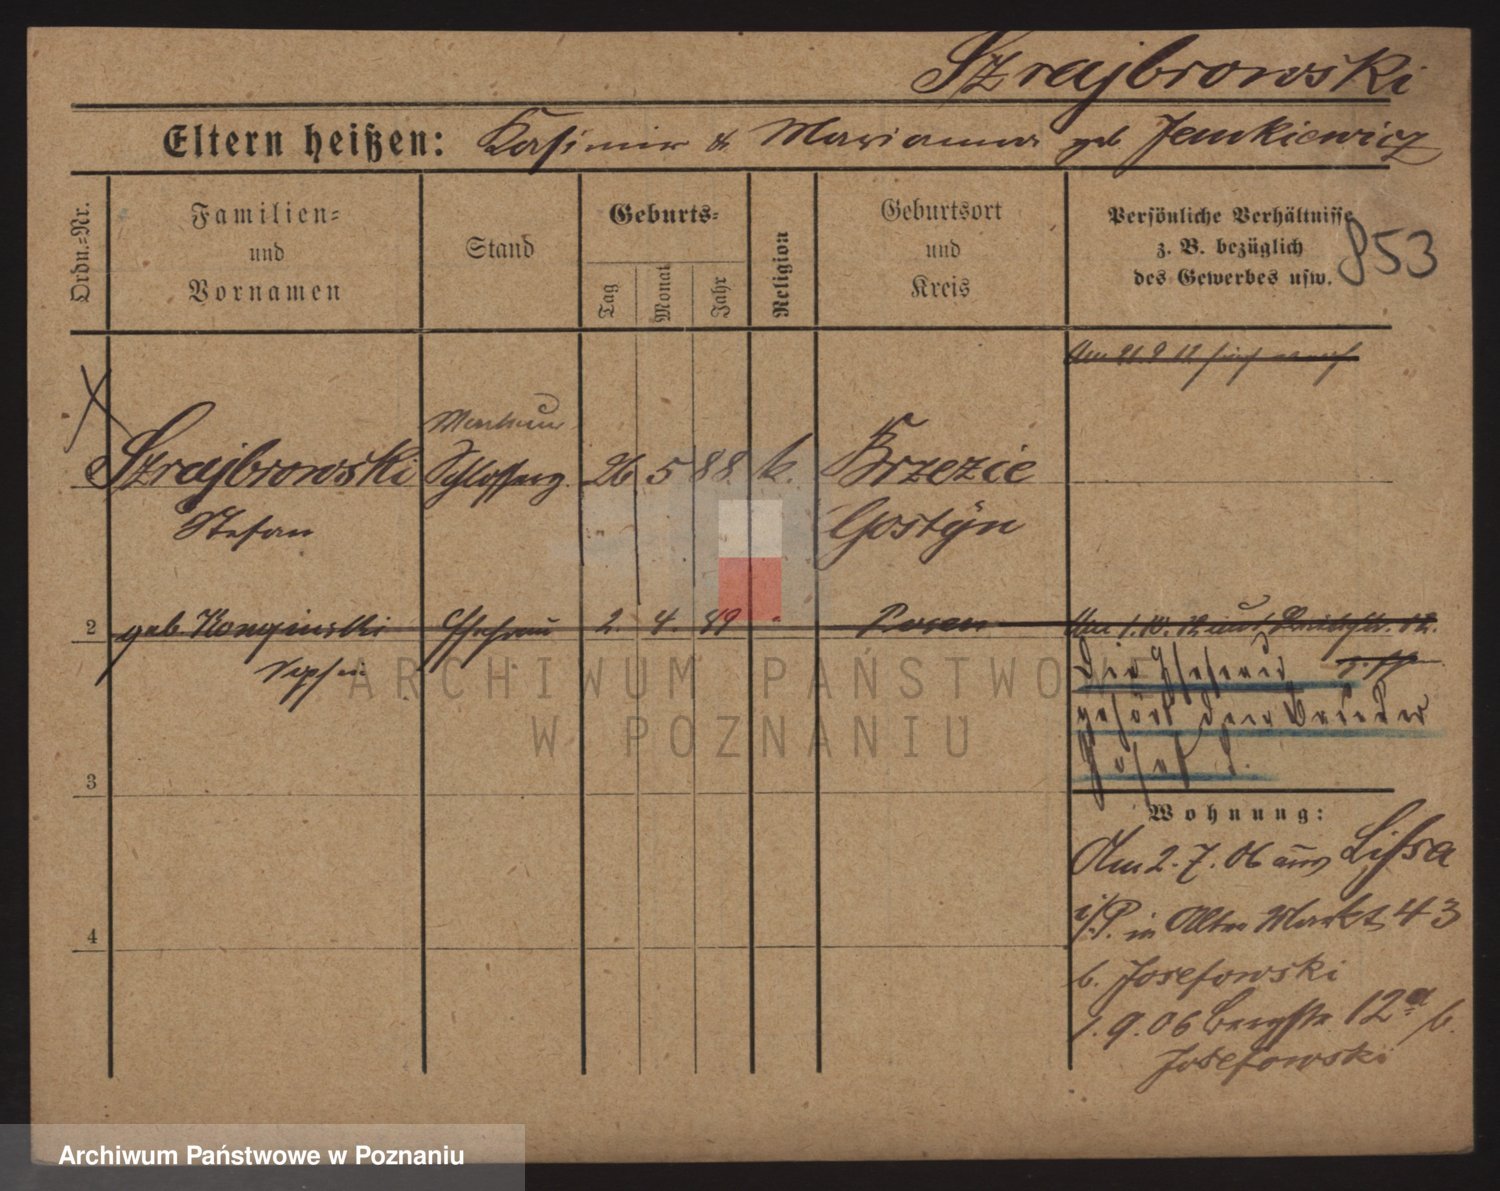 Szrajbrowski
Eltern heißen: Kasimir & Marianna geb Jenkiewicz
Ordn.-Nr.
Familien-
und
Vornamen
Stand
Geburts-
Tag
Monat
Jahr
Religion
Geburtsort
und
Kreis
Persönliche Verhältnisse
z. B. bezüglich
des Gewerbes usw.
853
Szrajbrowski Schlosserg. 26 5 88 k. Brzezie
Stefan Gostÿn
2 geb. Ehefrau 2. 4. 89 Posen
Die Ehefrau
gehört dem Bruder
Josef S.
3
Wohnung:
Am 2.7.06 aus Lissa
i/P. in Alter Markt 43
b. Josefowski
1.9.06 Bergstr. 12a b.
Josefowski
4
ARCHIWUM PAŃSTWOWE
W POZNANIU
Archiwum Państwowe w Poznaniu